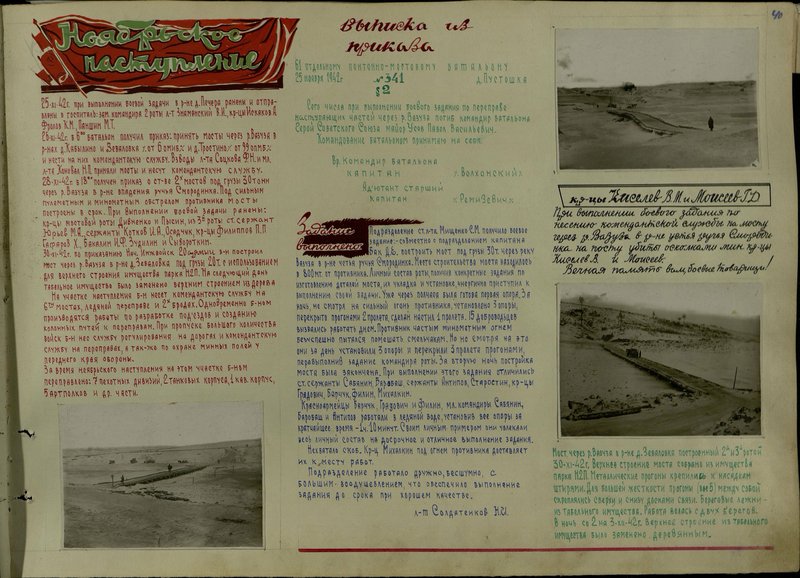 40
Ноябрьское
наступление
25-XI-42г. при выполнении боевой задачи в р-не д. Печора ранены и отпра-
влены в госпиталь: зам. командира 2 роты л-т Знаменский В.И., кр-цы Искяков А.
Фролов К.М., Паншин М.Т.
28-XI-42г. 6й батальон получил приказ: принять мосты через р. Вазуза в
р-нах д. Кабызино и Зеваловка
и нести на них комендантскую службу. Взводы л-та Соцкова Ф.Н. и мл.
л-та Ханова Н.П. приняли мосты и несут комендантскую службу.
28-XI-42г. получен приказ о ст-ве 2х мостов под грузы 30 тонн
через р. Вазуза в р-не впадения ручья Смородинка. Под сильным
пулеметным и минометным обстрелом противника мосты
построены в срок. При выполнении боевой задачи ранены:
кр-цы мостовой роты Дивченко и Лысик, из 3й роты ст. сержант
Юрьев М.А., сержанты Котков И.А., Осадчук, кр-цы Филиппов П.П
Гафаров Х., Бакалин И.Ф. Зудилин и Сывороткин.
30-XI-42г. по приказанию Нач. Инжвойск б-н построил
мост через р. Вазуза в р-не д. Зеваловка под грузы 20т. с использованием
для верхнего строения имущества парка Н2П. На следующий день
табельное имущество было заменено верхним строением из дерева
На участке наступления б-н несет комендантскую службу на
6ти мостах, ледяной переправе и 2х бродах. Одновременно б-ном
производятся работы по разработке подъездов и созданию
колонных путей к переправам. При пропуске большого количества
войск б-н нес службу регулирования на дорогах и комендантскую
службу на переправах, а так-же по охране минных полей у
переднего края обороны.
За время ноябрьского наступления на этом участке б-ном
переправлено: 7 пехотных дивизий, 2 танковых корпуса, 1 кав. корпус,
5 артполков и др. части.
Выписка из
приказа
61 отдельному понтонно-мостовому батальону
25 ноября 1942г. №341 д. Пустошка
§2
Сего числа при выполнении боевого задания по переправе
наступающих частей через р. Вазуза погиб командир батальона
Герой Советского Союза майор Усов Павел Васильевич.
Командование батальоном принимаю на себя.
Вр. Командир батальона
капитан /Волхонский/
Адъютант старший
капитан /Ремизевич/
Задание
выполнено
Подразделение ст. л-та Мищенко С.М. получило боевое
задание: совместно с подразделением капитана
Бак Д.Б. построить мост под грузы 30т. через реку
Вазуза в р-не устья ручья Смородинка. Место строительства моста находилось
в 800мт от противника. Личный состав роты, получив конкретные задания по
изготовлению деталей моста, их укладки и установке, энергично приступил к
выполнению своей задачи. Уже через полчаса была готова первая опора. За
ночь, не смотря на сильный огонь противника, установлено 3 опоры,
перекрыто прогонами 2 пролета, сделан настил 1 пролета. 15 добровольцев
вызвались работать днем. Противник частым минометным огнем
безуспешно пытался помешать смельчакам. Но не смотря на это
они за день установили 3 опоры и перекрыли 3 пролета прогонами,
перевыполнив задание командира роты. За вторую ночь постройка
моста была закончена. При выполнении этого задания отличились
ст. сержанты Савянин, Барабаш, сержанты Антипов, Старостин, кр-цы
Градович, Варчук, Филин, Михалкин.
Красноармейцы Варчук, Градович и Филин, мл. командиры Савянин,
Барабаш и Антипов работали в ледяной воде, установив все опоры за
кратчайшее время - 1ч. 10минут. Своим личным примером они увлекали
весь личный состав на досрочное и отличное выполнение задания.
Нехватало скоб. Кр-ц Михалкин под огнем противника доставляет
их к месту работ.
Подразделение работало дружно, бесшумно, с
большим воодушевлением, что обеспечило выполнение
задания до срока при хорошем качестве.
л-т Солдатенков Н.И.
кр-цы Киселев В.И и Моисеев Г.Д
При выполнении боевого задания по
несению комендантской службы на мосту
через р. Вазуза в р-не устья ручья
на посту убиты осколками мин кр-цы
Киселев В. и Моисеев.
Вечная память вам, боевые товарищи!
Мост через р. Вазуза в р-не д. Зеваловка построенный 2й и 3й ротой
30-XI-42г. Верхнее строение моста собрано из имущества
парка Н2П. Металические прогоны крепились к насадкам
штырями. Для большей жесткости прогоны между собой
скреплялись сверху и снизу досками связи. Береговые лежни -
из табельного имущества. Работа велась с двух берегов.
В ночь со 2 на 3-XII-42г. верхнее строение из табельного
имущества было заменено деревянным.